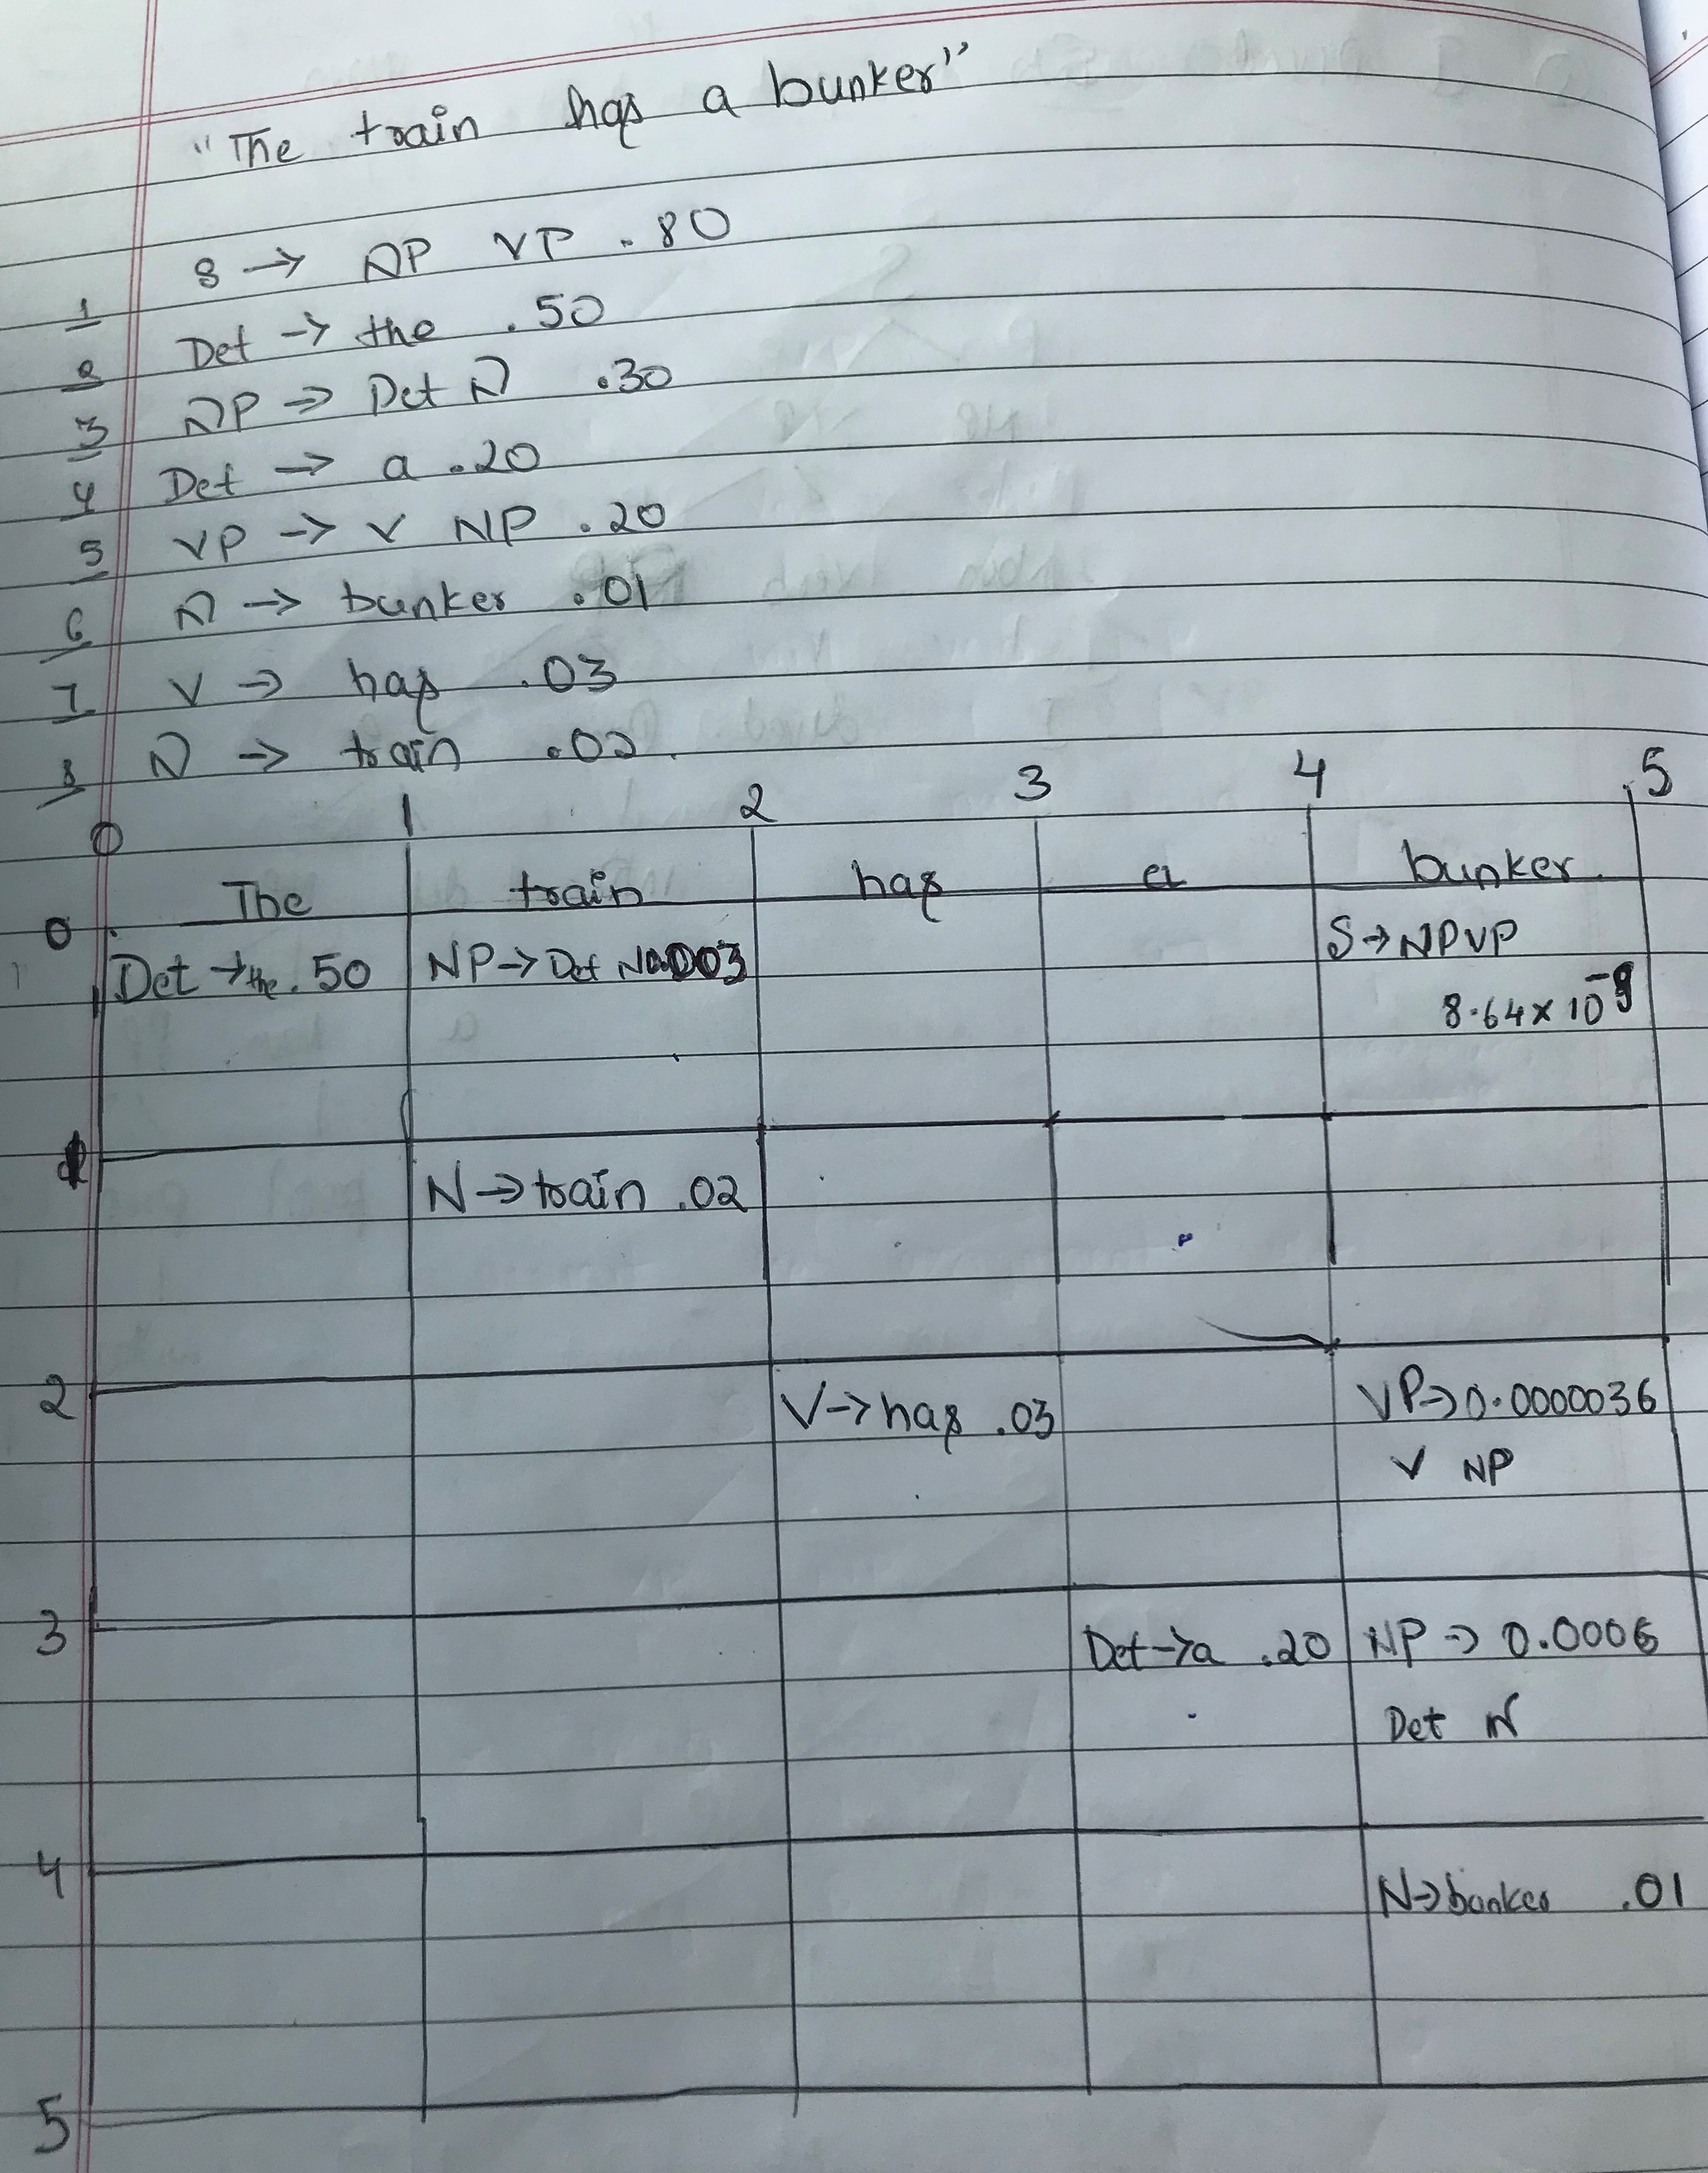 "The train has a bunker"
S → NP VP .80
1
Det → the .50
2
NP → Det N .30
3
Det → a .20
4
VP → V NP .20
5
N → bunker .01
6
V → has .03
7
N → train .02
8
0 1 2 3 4 5
The train has a bunker
0
Det → the .50 NP → Det N 0.003 S → NP VP
8.64 x 10⁻⁹
1
N → train .02
2 V → has .03 VP → 0.0000036
V NP
3 Det → a .20 NP → 0.0006
Det N
4
N → bunker .01
5